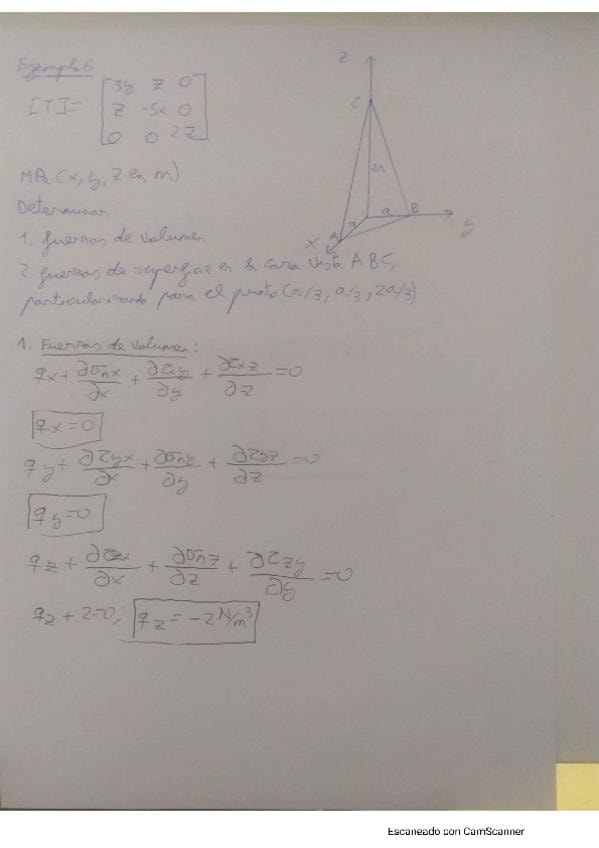 Ejemplo 6
[T]= [3y z 0
z -5x 0
0 0 2z]
MPa (x, y, z en m)
Determinar
1. fuerzas de volumen
2. fuerzas de superficie en la cara vista ABC,
particularizando para el punto (a/3, a/3, 2a/3)
z
C
2a
a
a
A
B
x
y
1. Fuerzas de volumen:
qx + ∂σnx/∂x + ∂τxy/∂y + ∂τxz/∂z = 0
qx = 0
qy + ∂τyx/∂x + ∂σny/∂y + ∂τyz/∂z = 0
qy = 0
qz + ∂τzx/∂x + ∂σnz/∂z + ∂τzy/∂y = 0
qz + 2 = 0; qz = -2 N/m³
Escaneado con CamScanner